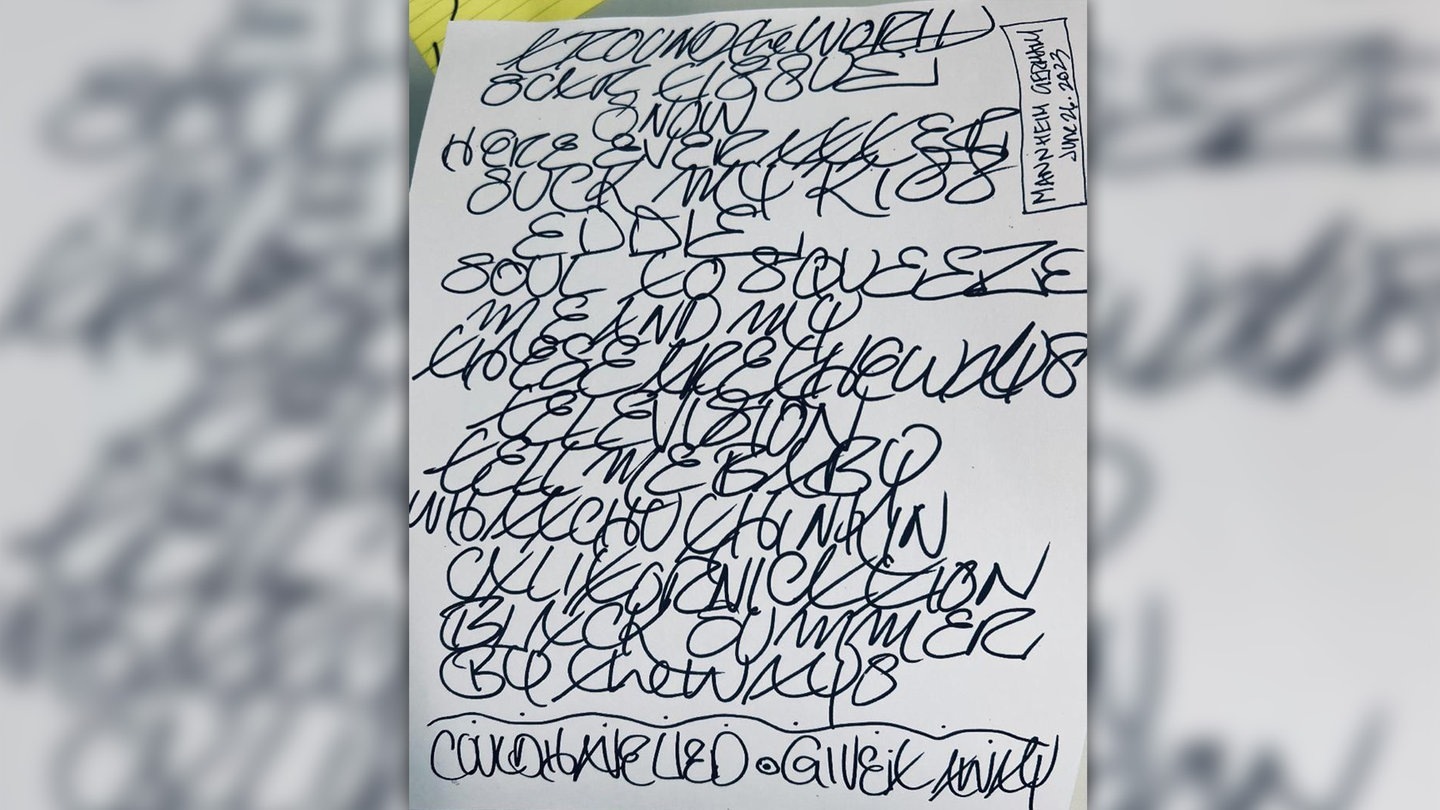 AROUND the WORLD
SCAR TISSUE
SNOW
HERE EVER AFTER
SUCK MY KISS
EDDIE
SOUL TO SQUEEZE
ME AND MY
THESE ARE THE WAYS
TELEVISION
TELL ME BABY
WHATCHU THINKIN
CALIFORNICATION
BLACK SUMMER
BY the WAYS
COULD HAVE LIED • GIVE it AWAY
MANNHEIM GERMANY
JUNE 26. 2023